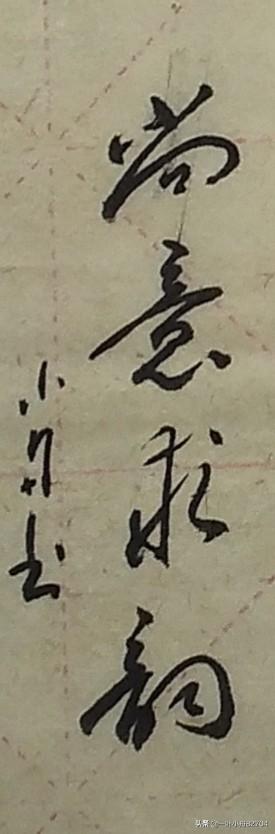 尚意求韵
小舟书
头条@一叶小舟82704